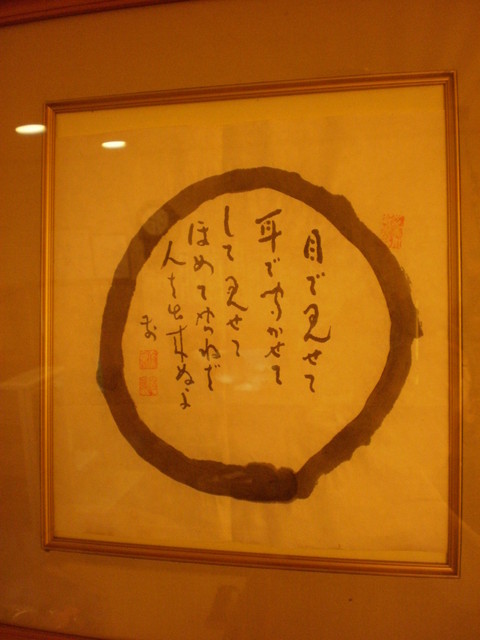 目で見せて
耳で聞かせて
して見せて
ほめてやらねば
人は出来ぬよ